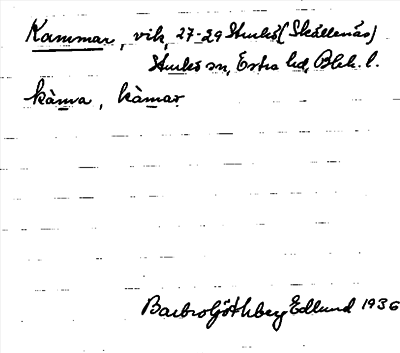 Kammar, vik, 27-29 Sturkö (Skällenäs)
Sturkö sn, Östra hd, Blek. l.
kàma, kàmar
Barbro Göthberg Edlund 1936